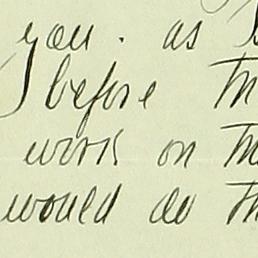 you. as
before
work on
would do